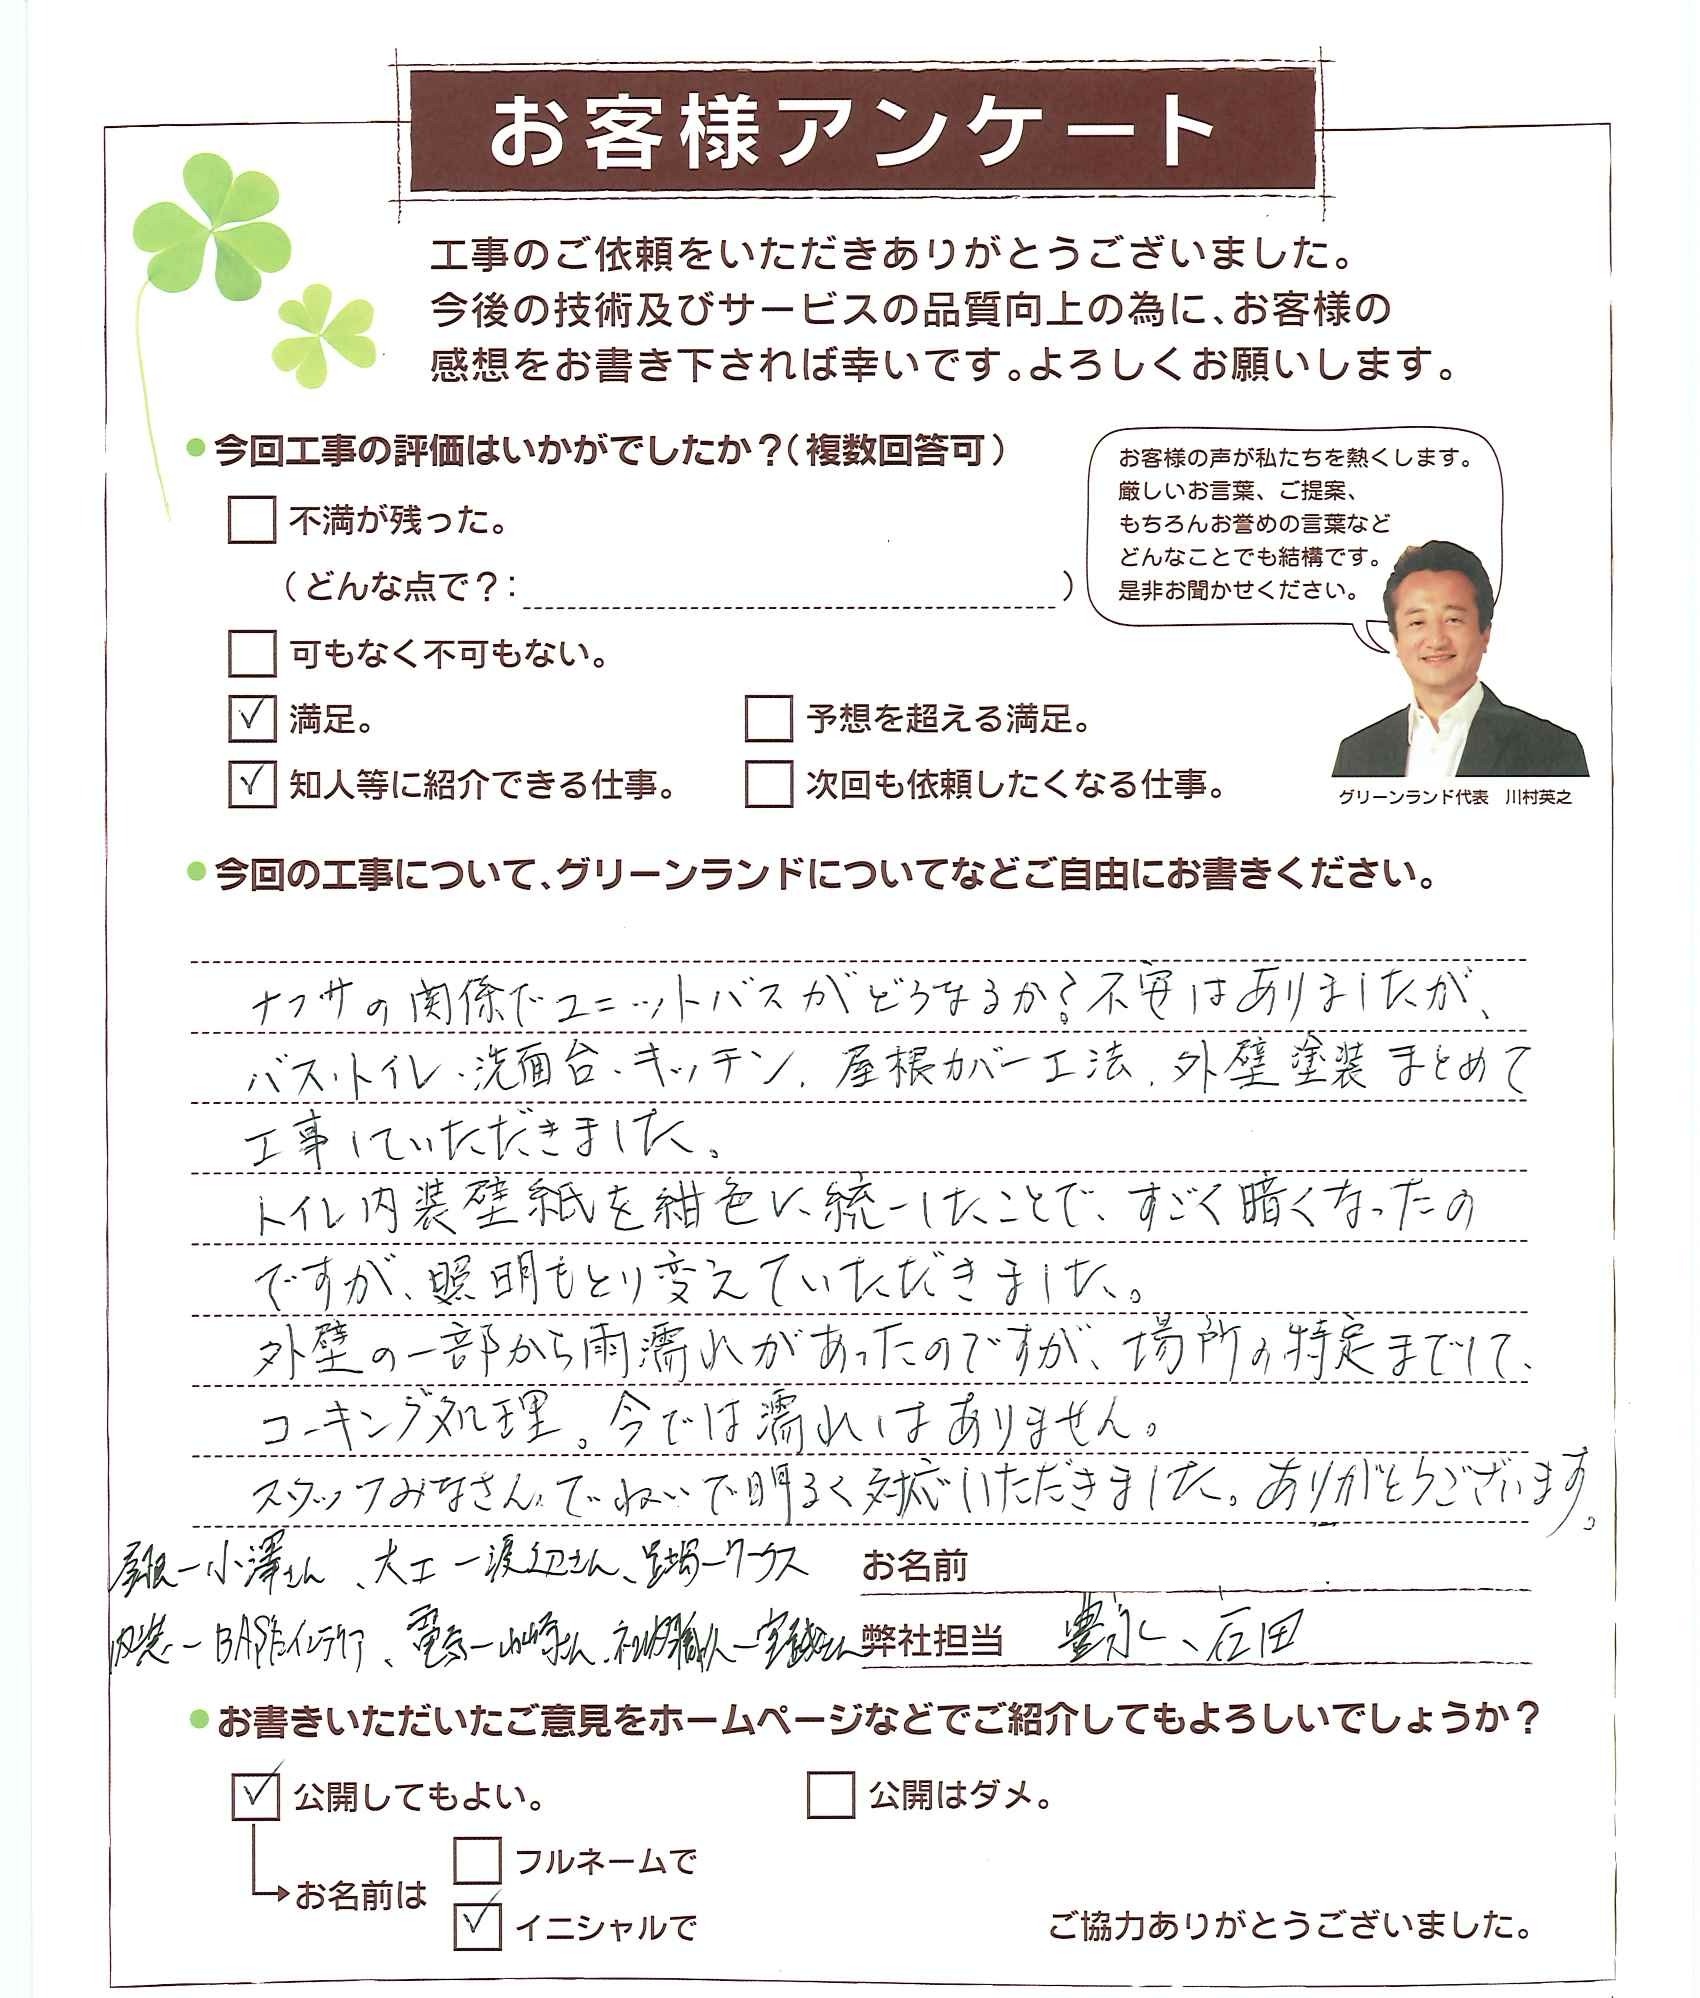 お客様アンケート
工事のご依頼をいただきありがとうございました。
今後の技術及びサービスの品質向上の為に、お客様の
感想をお書き下されば幸いです。よろしくお願いします。
●今回工事の評価はいかがでしたか？（複数回答可）
不満が残った。
（どんな点で？：　）
可もなく不可もない。
✓ 満足。
予想を超える満足。
✓ 知人等に紹介できる仕事。
次回も依頼したくなる仕事。
お客様の声が私たちを熱くします。
厳しいお言葉、ご提案、
もちろんお誉めの言葉など
どんなことでも結構です。
是非お聞かせください。
グリーンランド代表　川村英之
●今回の工事について、グリーンランドについてなどご自由にお書きください。
ナフサの関係でユニットバスがどうなるか？不安はありましたが、
バス・トイレ・洗面台・キッチン、屋根カバー工法、外壁塗装まとめて
工事していただきました。
トイレ内装壁紙を紺色に統一したことで、すごく暗くなったの
ですが、照明もとり変えていただきました。
外壁の一部から雨濡れがあったのですが、場所の特定までして、
コーキング処理。今では濡れはありません。
スタッフみなさん、ていねいで明るく対応いただきました。ありがとうございます。
屋根ー小澤さん、大工ー渡辺さん、足場ーワークス
内装ーBASEインテリア、電気ー山崎さん、
お名前
弊社担当　豊永、石田
●お書きいただいたご意見をホームページなどでご紹介してもよろしいでしょうか？
✓ 公開してもよい。
公開はダメ。
お名前は
フルネームで
✓ イニシャルで
ご協力ありがとうございました。